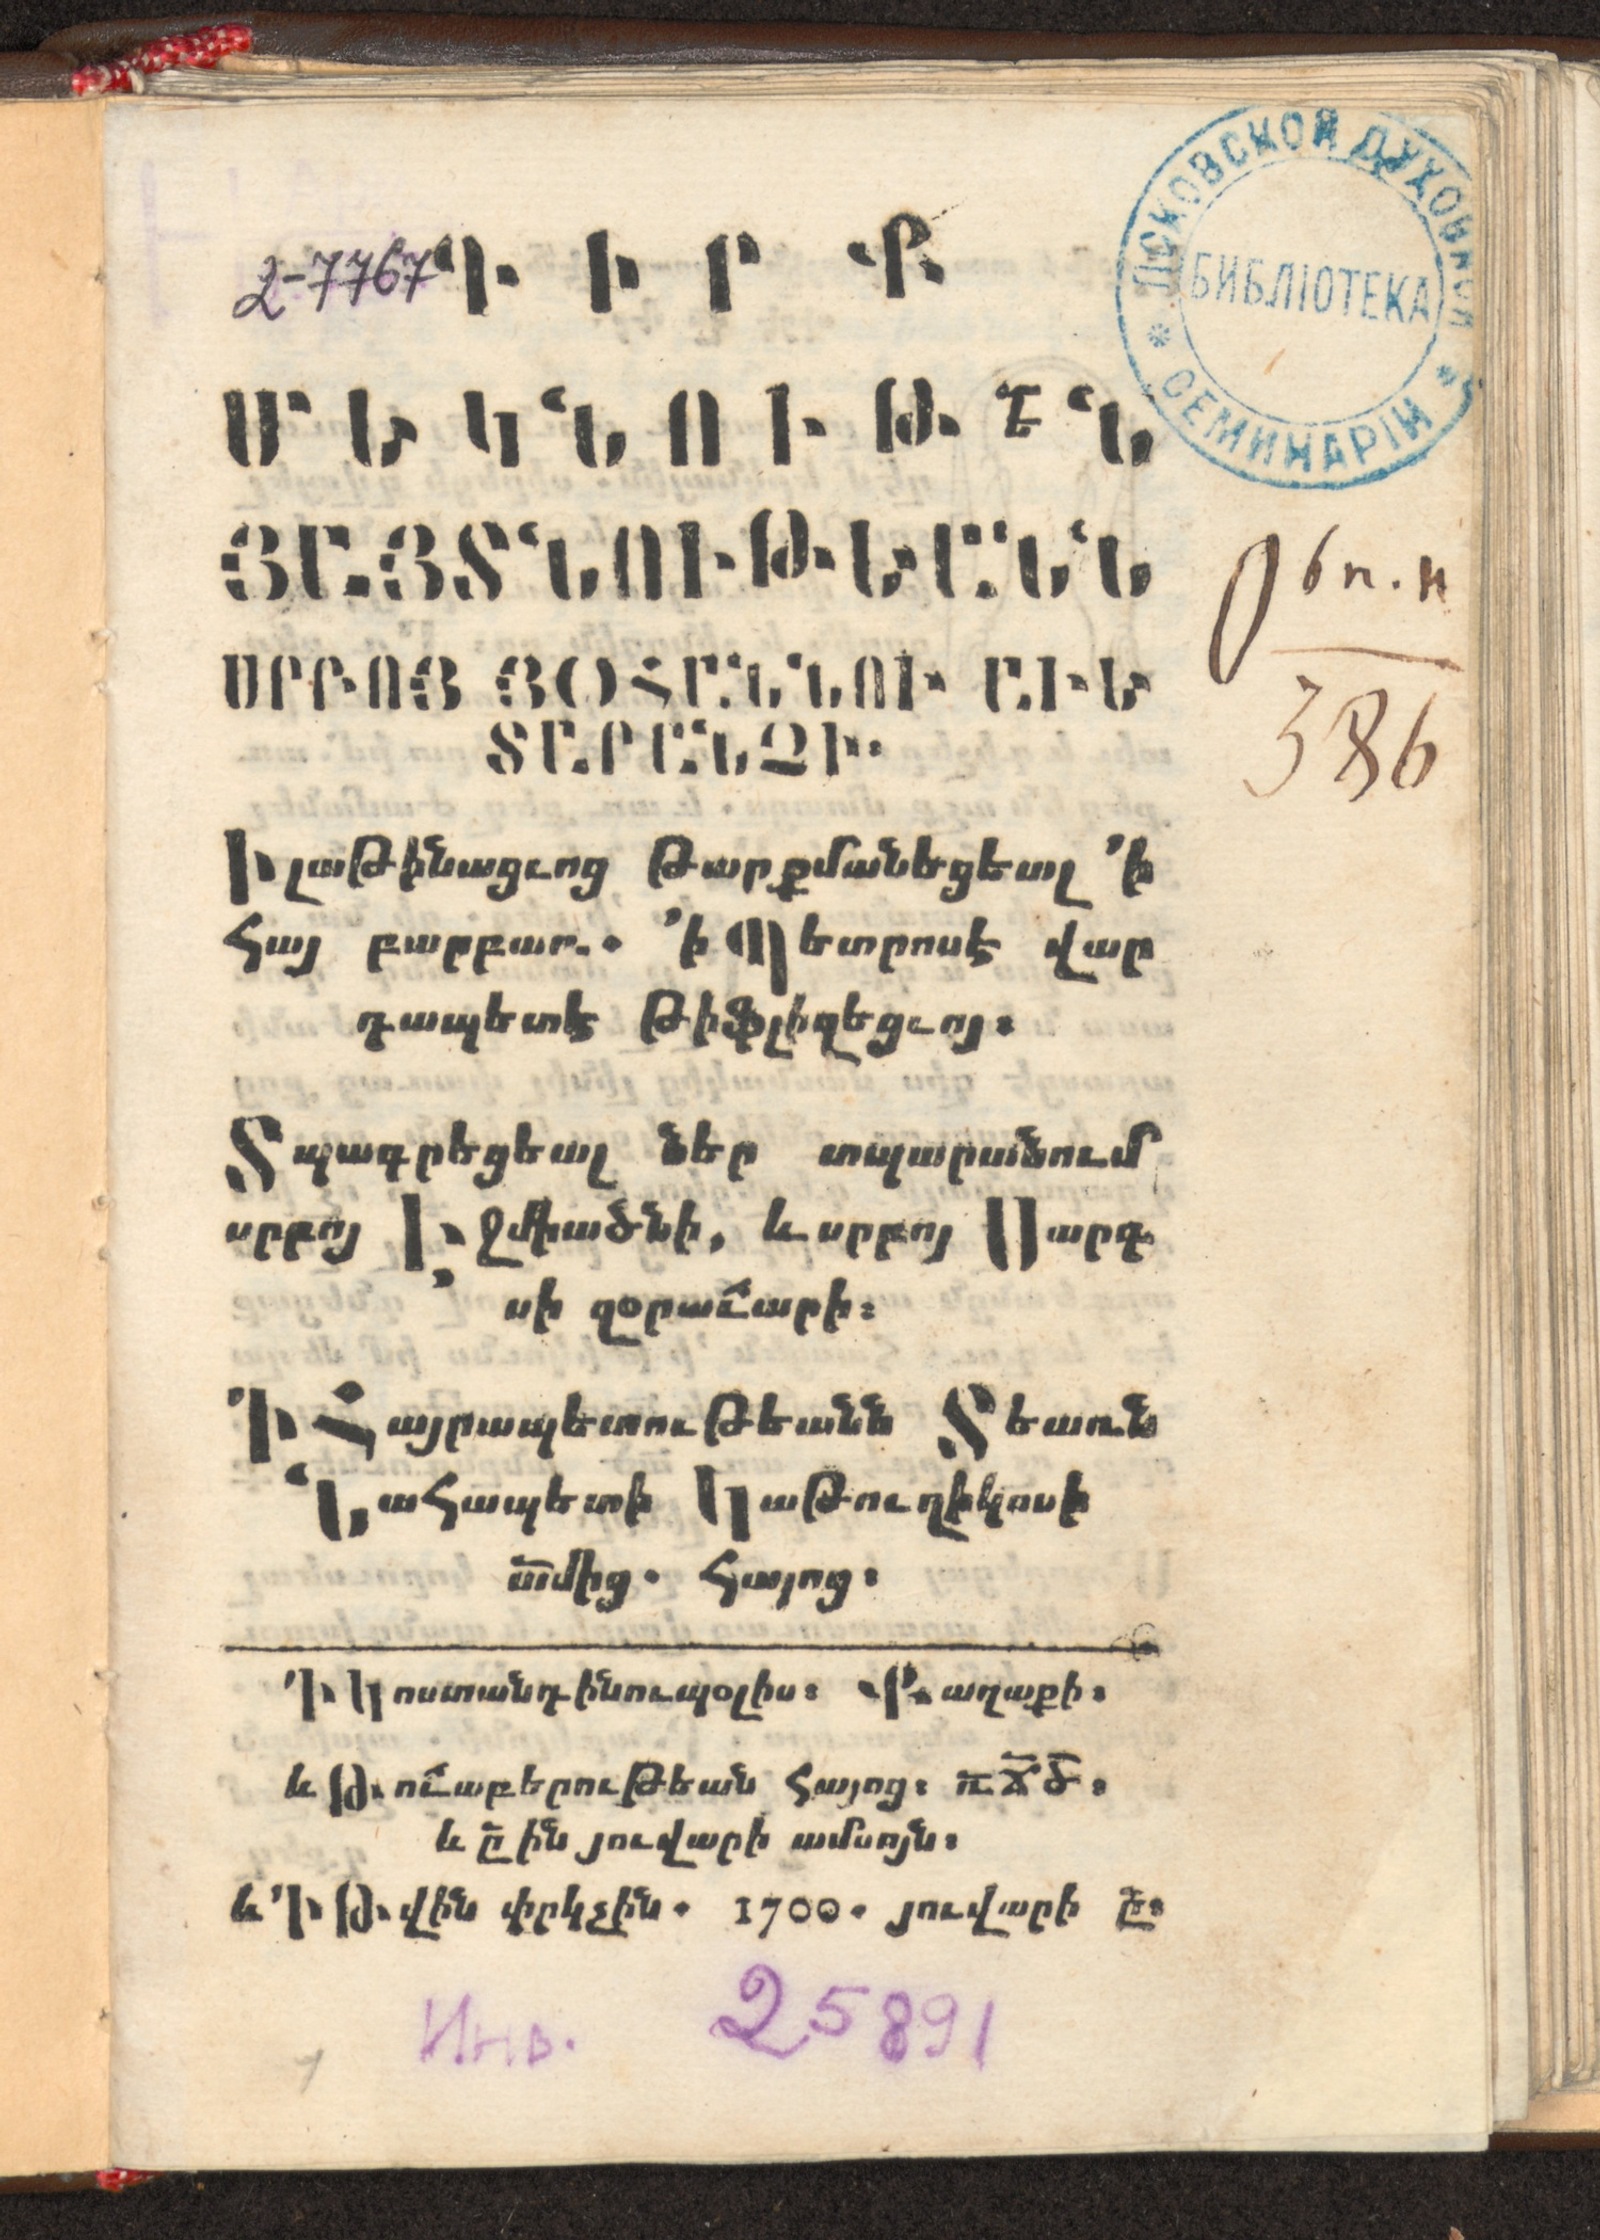 2-7767
ԳԻՐՔ
ՄԵԿՆՈՒԹԷՆ
ՅԱՅՏՆՈՒԹԵԱՆՆ
ՍՐԲՈՅ ՅՕՀԱՆՆՈՒ ԱՒԵ
ՏԱՐԱՆՉԻ.
Ի լաթինացւոց թարքմանեցեալ ՚ի
հայ բարբառ. ՚ի Պետրոսէ վար
դապետէ Թիֆլիզեցւոյ։
Տպագրեցեալ ներ տպարանում
սրբոյ Էջմիածնի, և սրբոյ Սարգ
սի զօրավարի։
Ի Հայրապետութեանն Տեառն
Նահապետի Կաթուղիկոսի
ամից. հայոց։
Ի Կոստանդինուպօլիս։ Քաղաքի։
և Թուաբերութեան հայոց։ ՌՃԾ։
և Ը ին յուվարի ամսոյն։
և Ի Թվին փրկչին. 1700. յուվարի Ը։
ПСКОВСКОЙ ДУХОВНОЙ
БИБЛІОТЕКА
СЕМИНАРІИ
386
Инв. 25891